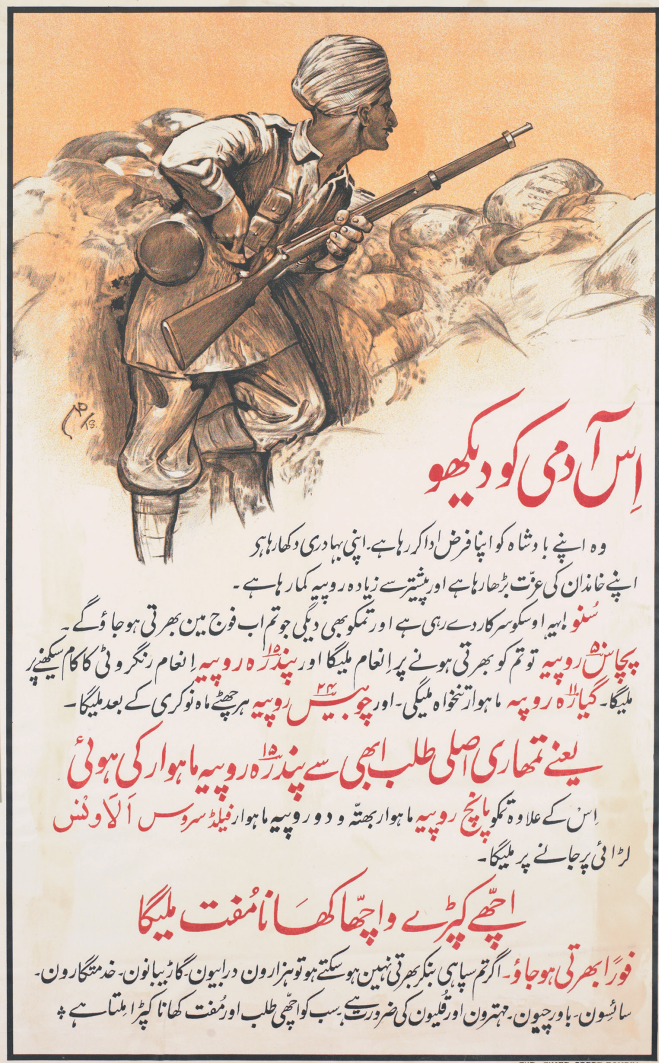 اِس آدمی کو دیکھو
وہ اپنے بادشاہ کو اپنا فرض ادا کر رہا ہے۔ اپنی بہادری دکھا رہا ہی
اپنے خاندان کی عزّت بڑھا رہا ہے اور پیشتر سے زیادہ روپیہ کما رہا ہے۔
سُنو یہہ اوسکو سرکار دے رہی ہے اور تمکو بھی دیگی جو تم اب فوج مین بھرتی ہو جاؤگے۔
پچاس ۵۰ روپیہ تو تم کو بھرتی ہونے پر انعام ملیگا اور پندرہ ۱۵ روپیہ اِنعام رنگروٹی کا کام سیکھنے پر
ملیگا۔ گیارہ ۱۱ روپیہ ماہوار تنخواہ ملیگی۔ اور چوبیس ۲۴ روپیہ ہر چھٹے ماہ نوکری کے بعد ملیگا۔
یعنے تمھاری اصلی طلب ابھی سے پندرہ ۱۵ روپیہ ماہوار کی ہوئی
اِس کے علاوہ تمکو پانچ روپیہ ماہوار بھتّہ و دو روپیہ ماہوار فیلڈ سروس اَلاونس
لڑائی پر جانے پر ملیگا۔
اچھّے کپڑے و اچھّا کھانا مُفت ملیگا
فورًا بھرتی ہو جاؤ۔ اگر تم سپاہی بنکر بھرتی نہین ہو سکتے ہو تو ہزارون درابیون۔ گاڑیبانون۔ خدمتگارون۔
سائسون۔ باورچیون۔ مہترون اور قُلیون کی ضرورت ہے۔ سب کو اچھّی طلب اور مُفت کھانا کپڑا ملتا ہے